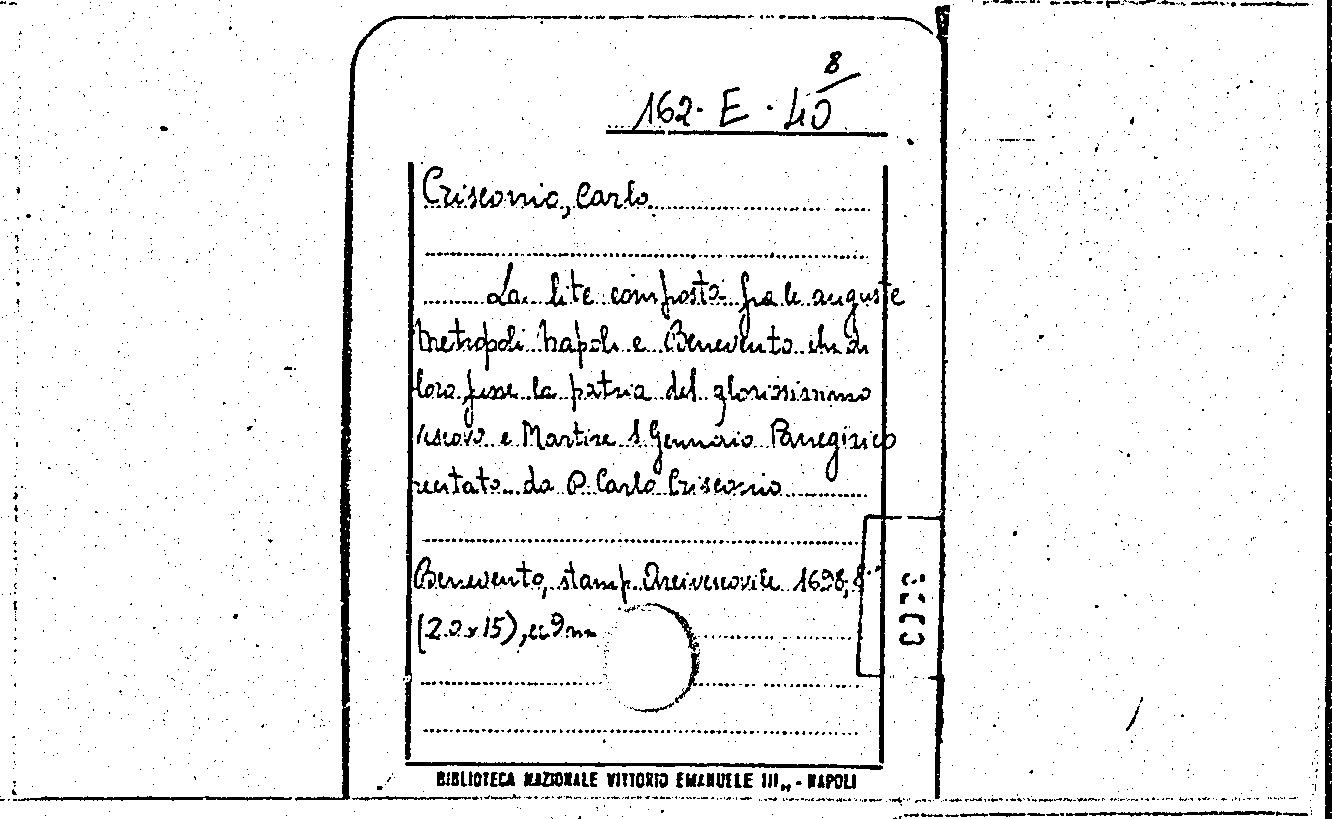 8
162. E. 40
Crisconio, Carlo
La lite composta fra le auguste
Metropoli Napoli e Benevento chi di
loro fusse la patria del gloriosissimo
Vescovo e Martire S Gennaro Panegirico
recitato da D. Carlo Crisconio
Benevento, stamp. Arcivescovile 1698, 8°
(20x15), cc 9 nn
BIBLIOTECA NAZIONALE VITTORIO EMANUELE III„ - NAPOLI